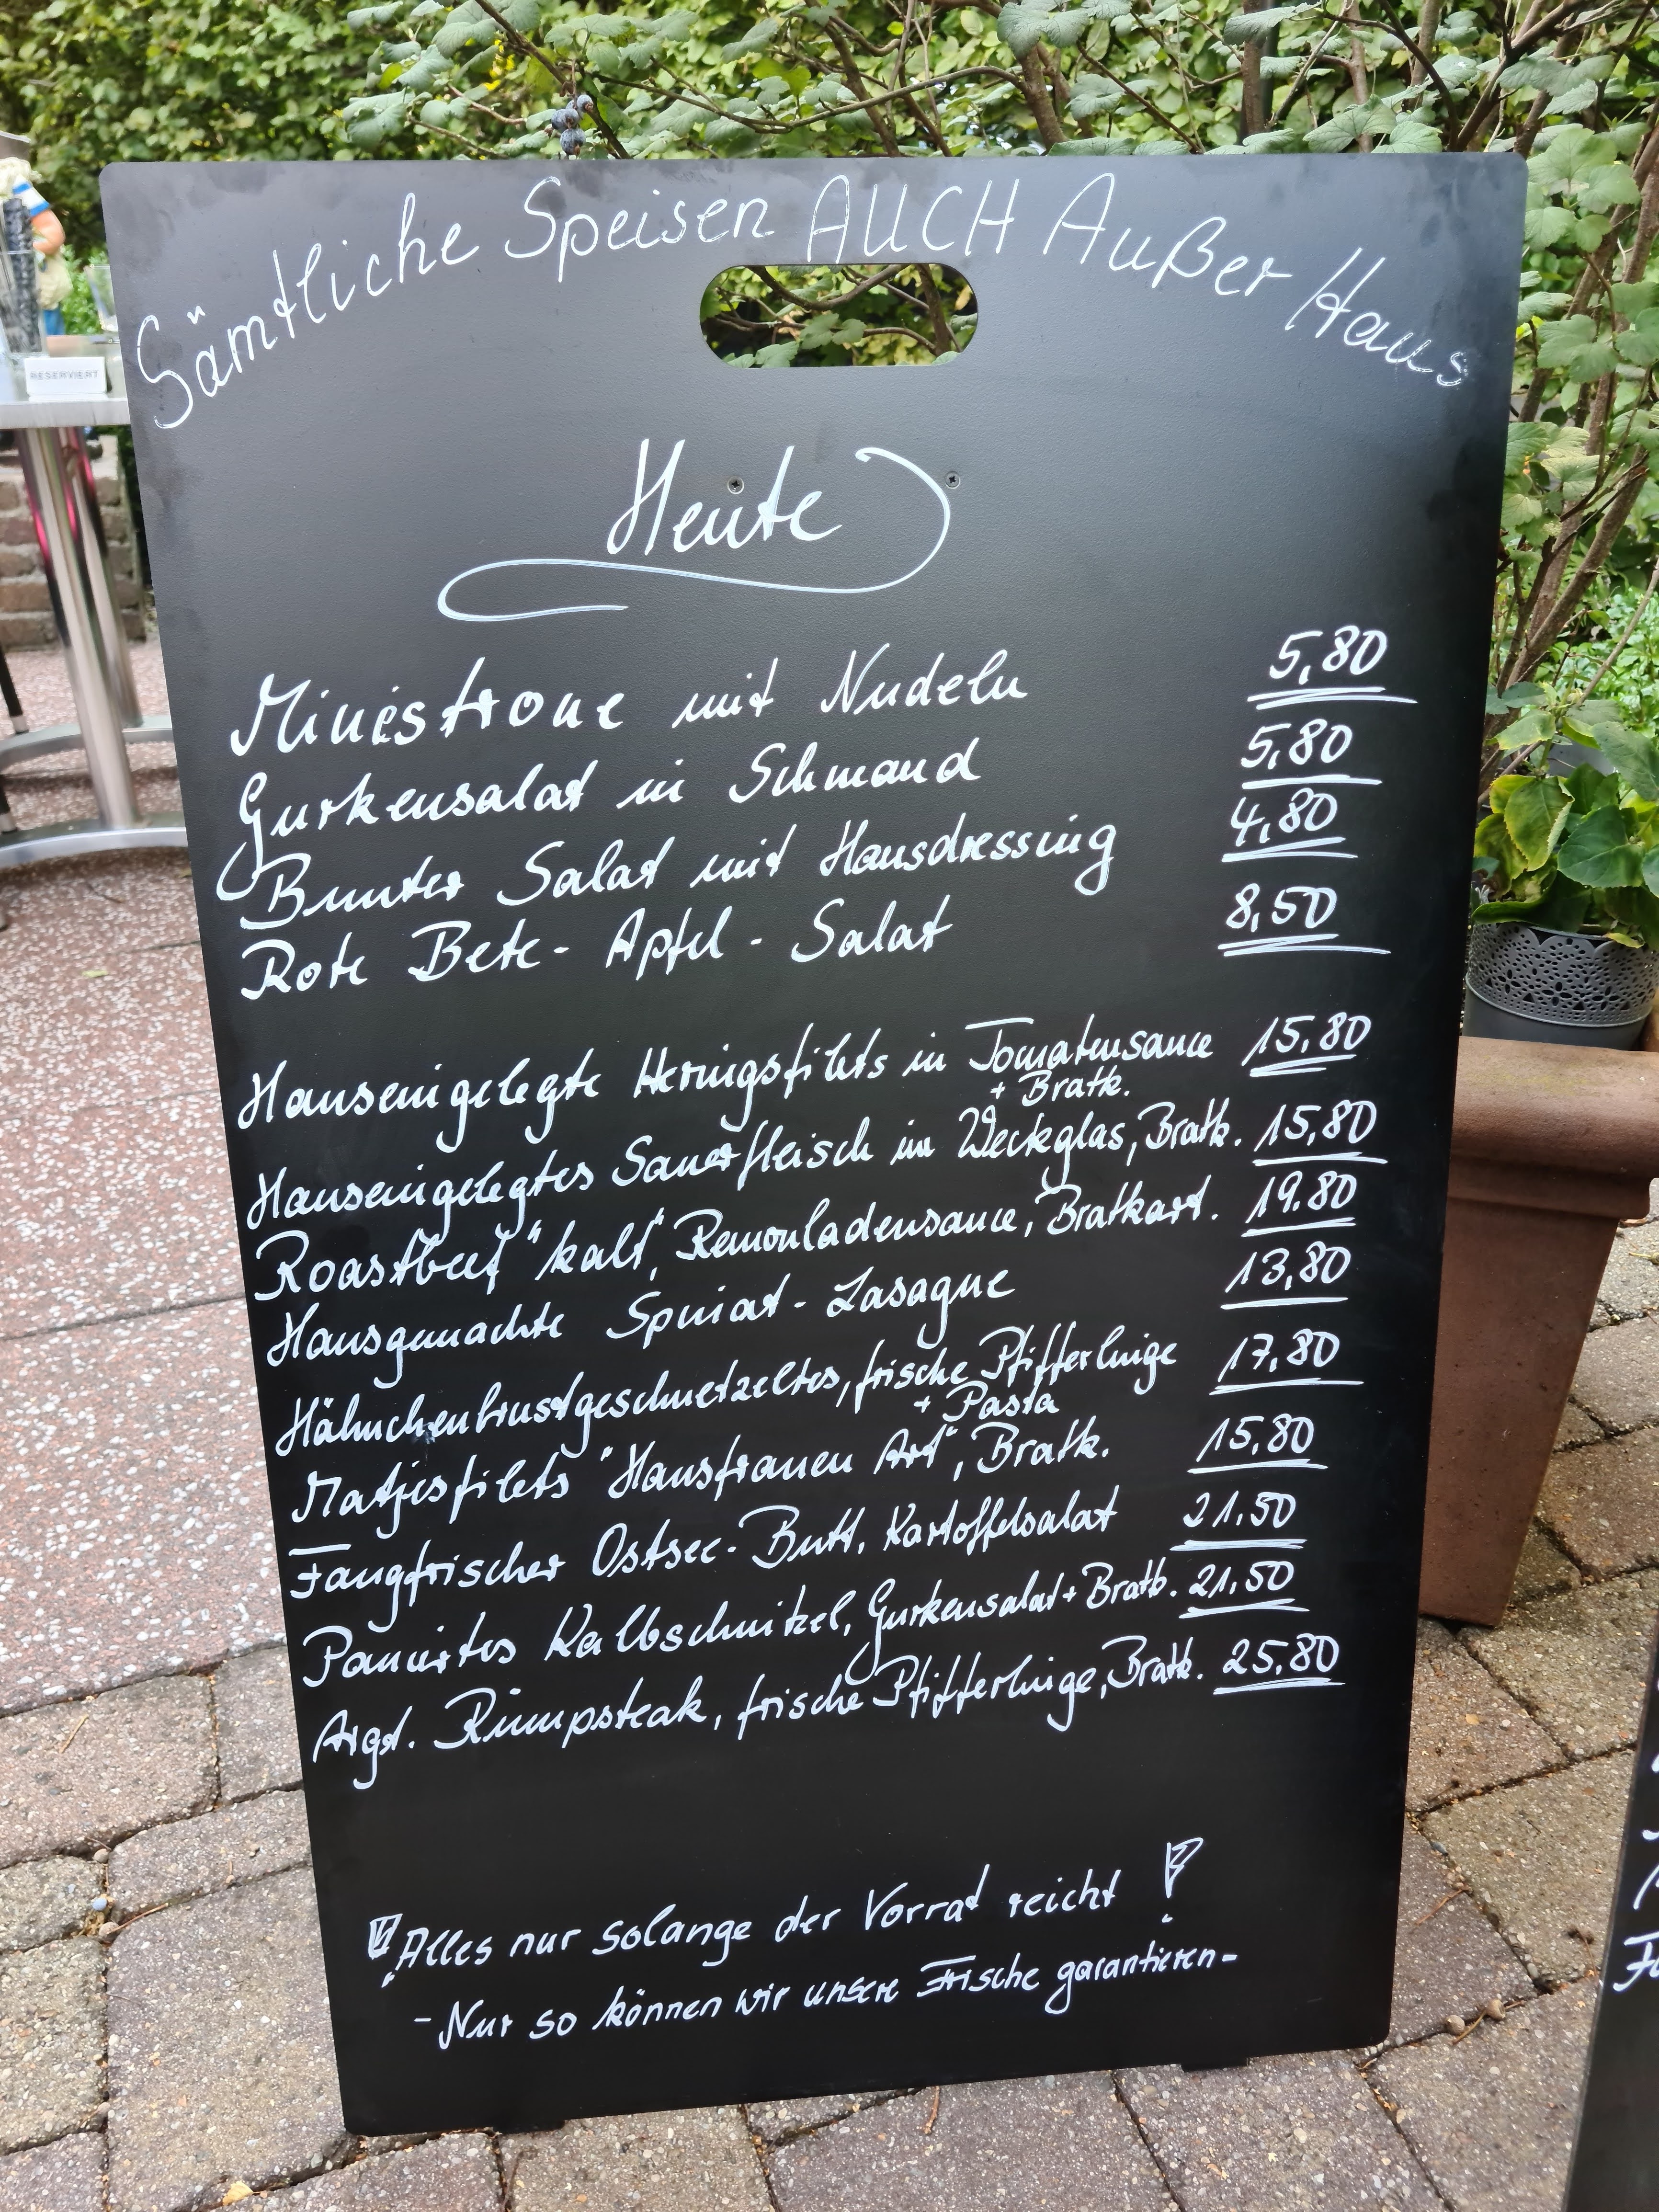 Sämtliche Speisen AUCH Außer Haus
RESERVIERT
Heute
Minestrone mit Nudeln 5,80
Gurkensalat in Schmand 5,80
Bunter Salat mit Hausdressing 4,80
Rote Bete - Apfel - Salat 8,50
Hauseingelegte Heringsfilets in Tomatensauce 15,80
+ Bratk.
Hauseingelegtes Sauerfleisch im Weckglas, Bratk. 15,80
Roastbeef "kalt", Remouladensauce, Bratkart. 19.80
Hausgemachte Spinat - Lasagne 13,80
Hähnchenbrustgeschnetzeltes, frische Pfifferlinge 17,80
+ Pasta
Matjesfilets "Hausfrauen Art", Bratk. 15,80
Fangfrischer Ostsee-Butt, Kartoffelsalat 21,50
Paniertes Kalbschnitzel, Gurkensalat + Bratk. 21,50
Argt. Rumpsteak, frische Pfifferlinge, Bratk. 25,80
! Alles nur solange der Vorrat reicht !
- Nur so können wir unsere Frische garantieren -